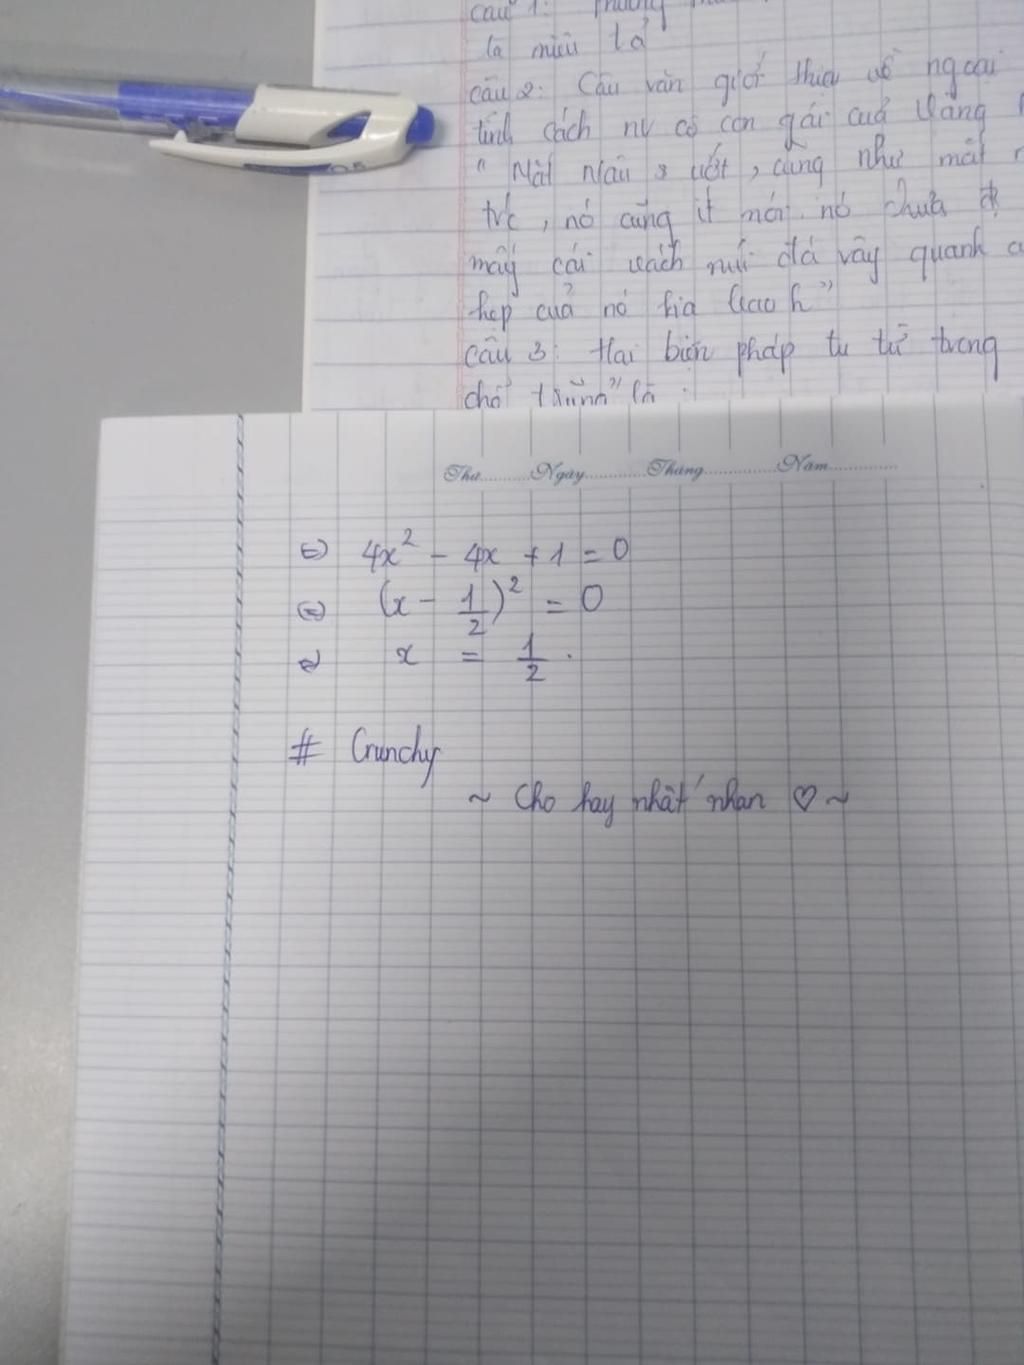 câu 1:
là miêu tả
câu 2: Câu văn giới thiệu về ngoại
tính cách nv cô con gái của
ướt, cũng như mất
nó cũng ít nói. nó chưa
mấy cái vách núi đá vây quanh
hẹp của nó
câu 3: Hai biện pháp tu từ trong
chỗ là
0.5
Thứ..........Ngày............Tháng..............Năm.............
⇔ 4x² - 4x + 1 = 0
⇔ (x - 1/2)² = 0
⇔ x = 1/2.
# Crunchy
~ Cho hay nhất nhan ♡ ~